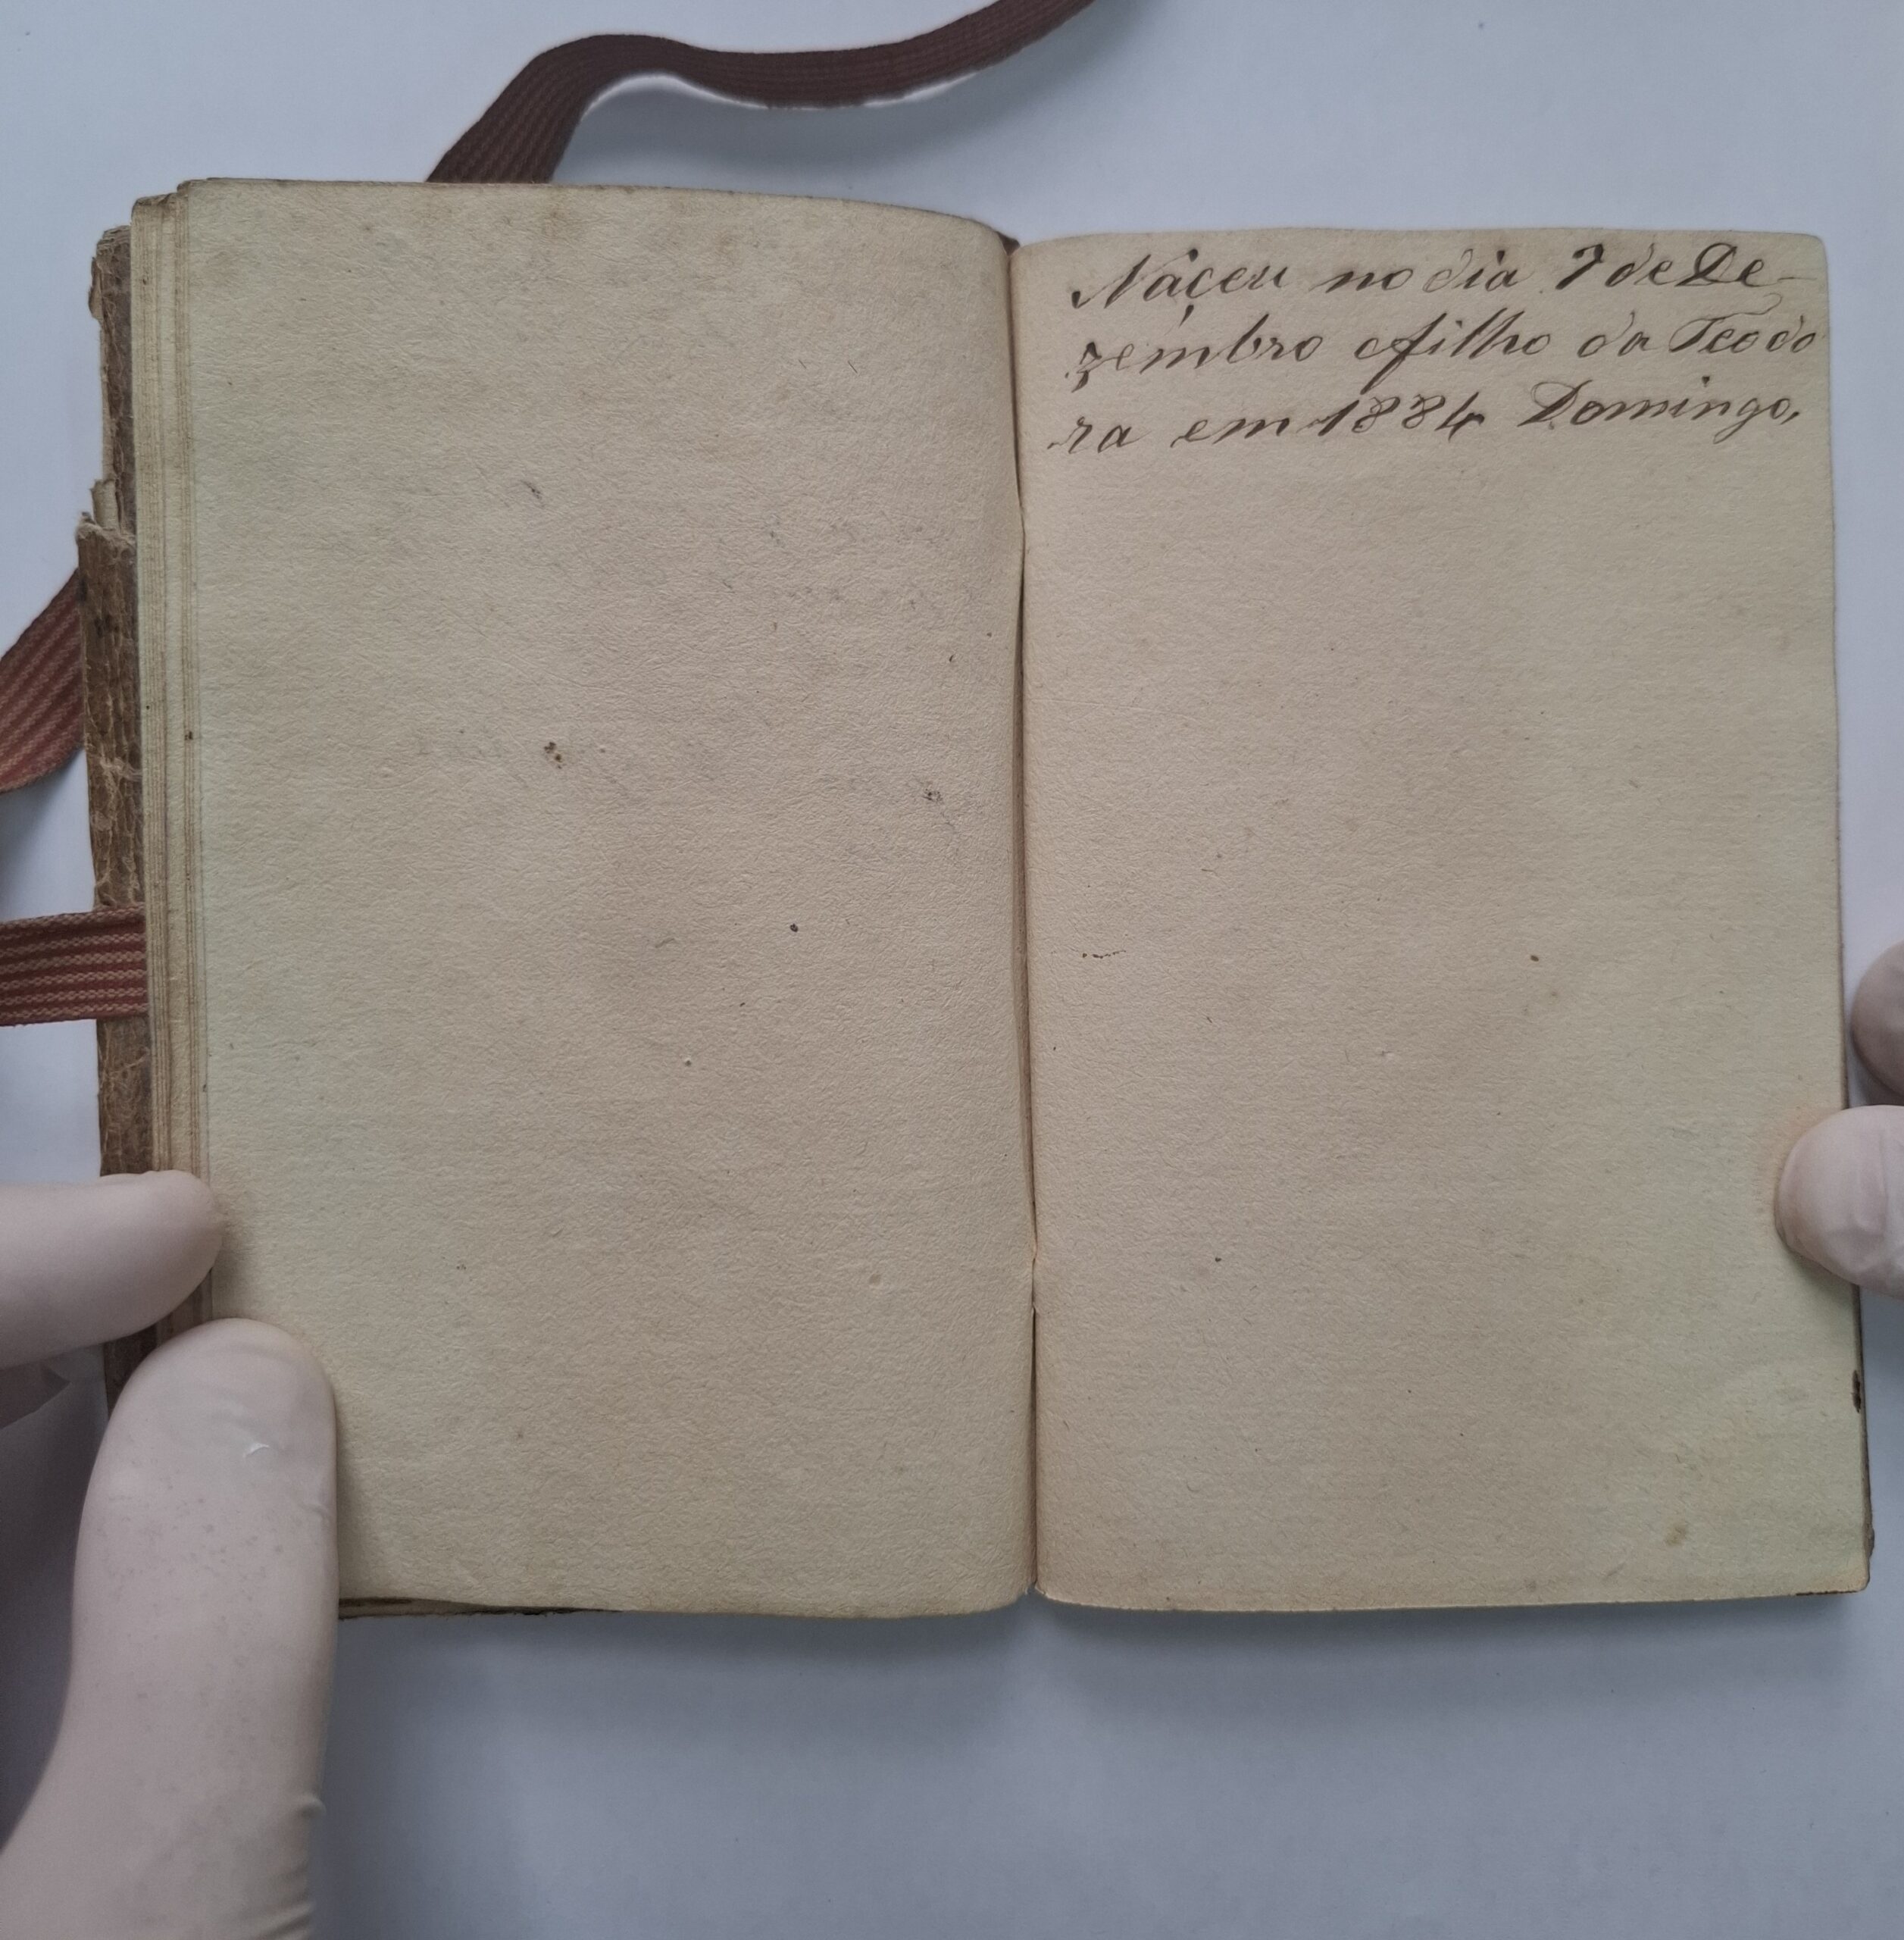 Náçeu no dia 7 de De-
zembro o filho da Teodo
ra em 1884 Domingo,